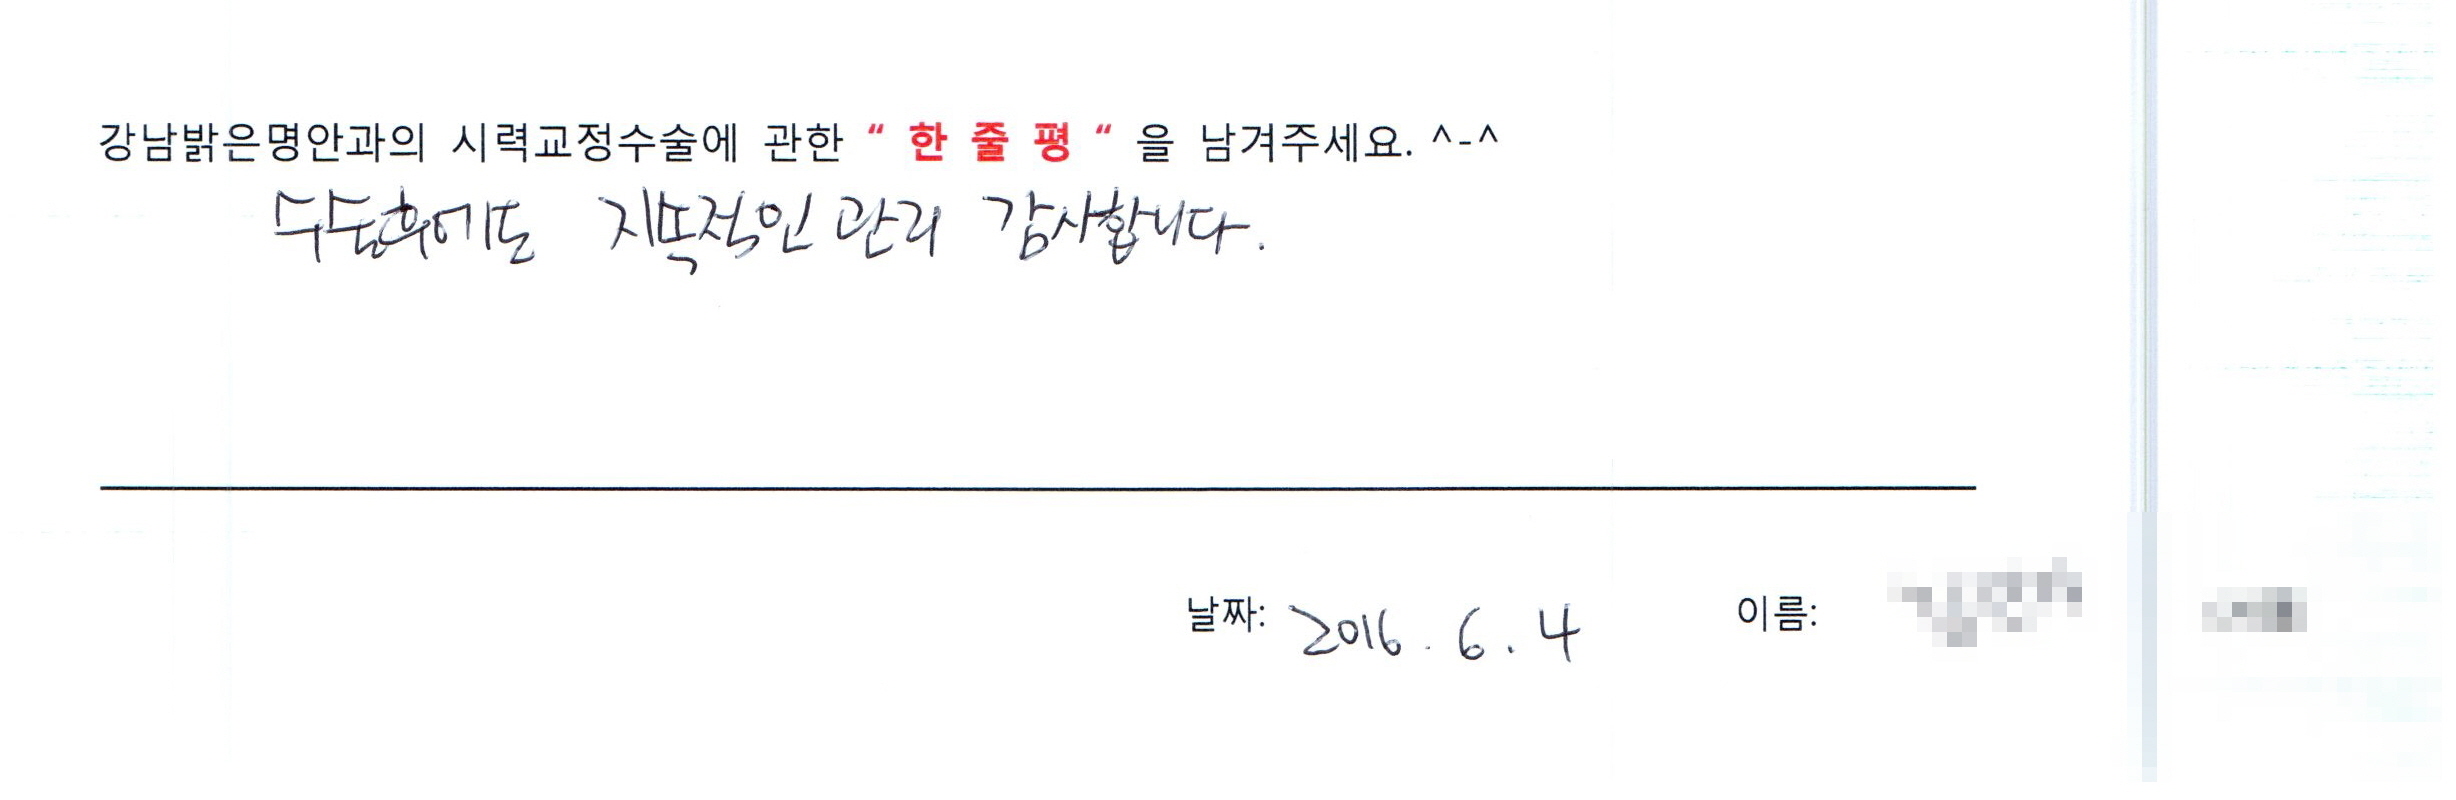 강남밝은명안과의 시력교정수술에 관한 “ 한 줄 평 “ 을 남겨주세요. ^-^
수술후에도 지속적인 관리 감사합니다.
날짜: 2016. 6. 4 이름: